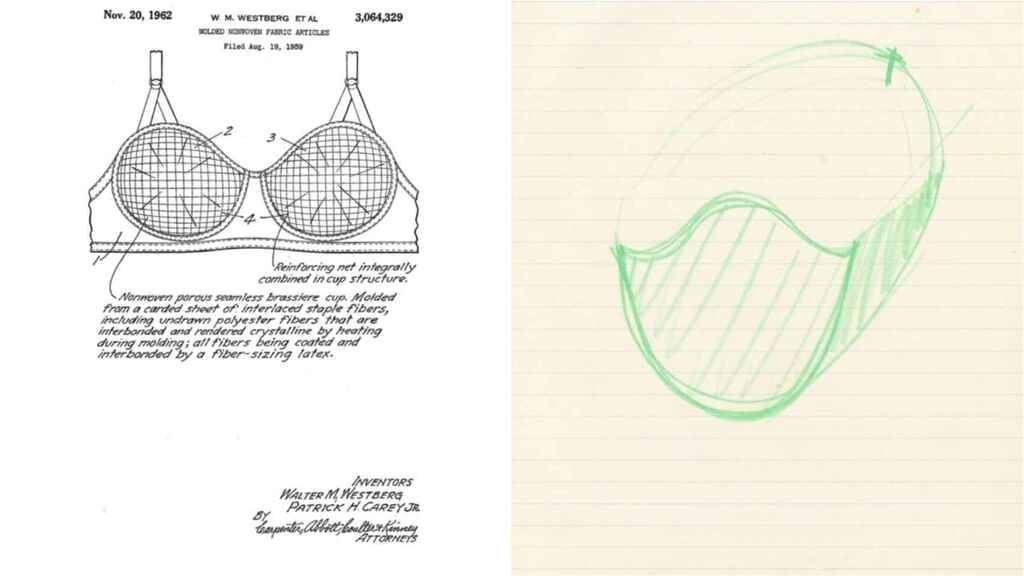 Nov. 20, 1962
W. M. WESTBERG ET AL
3,064,329
MOLDED NONWOVEN FABRIC ARTICLES
Filed Aug. 19, 1959
2
3
4
1
Reinforcing net integrally
combined in cup structure.
Nonwoven porous seamless brassiere cup. Molded
from a carded sheet of interlaced staple fibers,
including undrawn polyester fibers that are
interbonded and rendered crystalline by heating
during molding; all fibers being coated and
interbonded by a fiber-sizing latex.
INVENTORS
WALTER M. WESTBERG
PATRICK H. CAREY JR.
BY
Carpenter, Abbott, Coulter & Kinney
ATTORNEYS